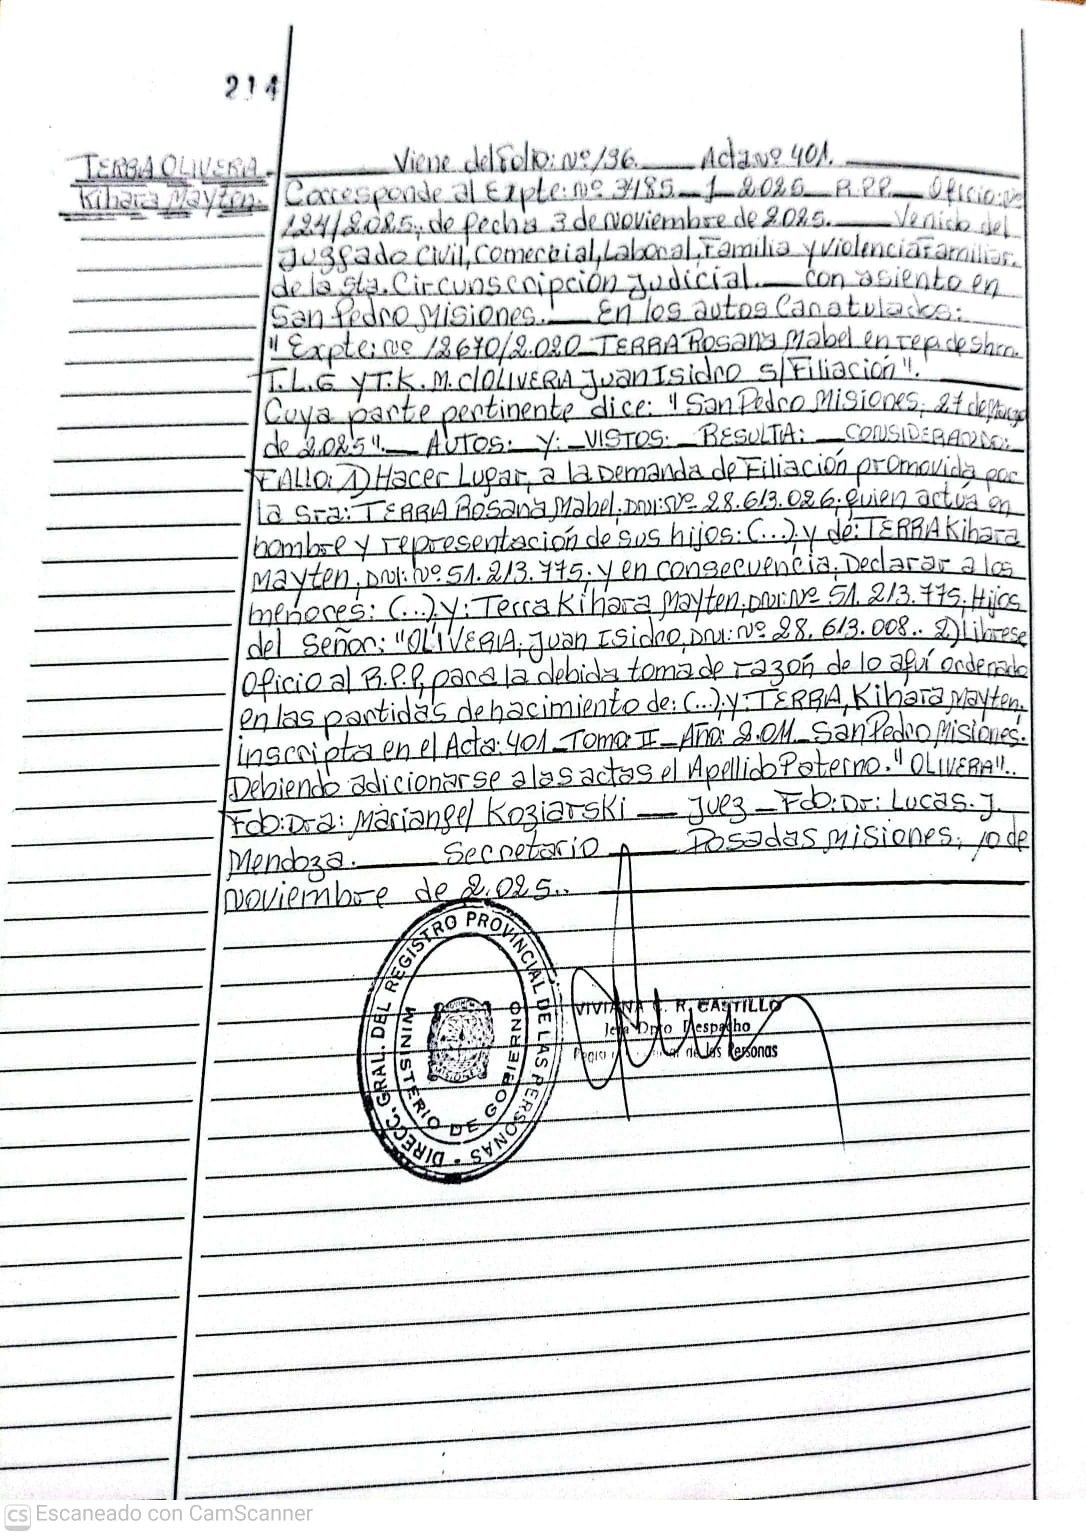 214
TERRA OLIVERA
Kihara Mayten.
Viene del Folio: Nº 196. Acta Nº 401.
Corresponde al Expte: Nº 3185 - 1 - 2025 R.P.P. Oficio: Nº
124/2.025, de fecha 3 de noviembre de 2.025. Venido del
Juzgado Civil, Comercial, Laboral, Familia y Violencia Familiar.
de la 5ta. Circunscripción Judicial. con asiento en
San Pedro Misiones. En los autos Caratulados:
"Expte: Nº 12670/2.020 TERRA Rosana Mabel en rep de s hm.
T.L.E y T.K.M. C/OLIVERA Juan Isidro s/Filiación".
Cuya parte pertinente dice: "San Pedro Misiones, 27 de Marzo
de 2.025". AUTOS: Y: VISTOS: RESULTA: CONSIDERANDO:
FALLO: 1) Hacer Lugar, a la Demanda de Filiación promovida por
la Sra: TERRA Rosana Mabel, DNI: Nº 28.613.026, quien actúa en
nombre y representación de sus hijos: (...) y de: TERRA Kihara
Mayten, DNI: Nº 51.213.775, y en consecuencia, Declarar a los
menores: (...) y: Terra Kihara Mayten, DNI: Nº 51.213.775, Hijos
del Señor: "OLIVERIA, Juan Isidro, DNI: Nº 28.613.008.. 2) Líbrese
Oficio al R.P.P, para la debida toma de razón de lo aquí ordenado
en las partidas de nacimiento de: (...) y: TERRA, Kihara Mayten,
inscripta en el Acta: 401 - Tomo: II - Año: 2.011 - San Pedro Misiones.
Debiendo adicionarse a las actas el Apellido Paterno. "OLIVERA"..
Fdo: Dra: Mariangel Koziarski Juez - Fdo: Dr: Lucas. J.
Mendoza. Secretario Posadas Misiones, 10 de
noviembre de 2.025..
DIRECC. GRAL. DEL REGISTRO PROVINCIAL DE LAS PERSONAS
MINISTERIO DE GOBIERNO
MISIONES
VIVIANA R. CASTILLO
Jefa Dpto Despacho
de las Personas
CS Escaneado con CamScanner